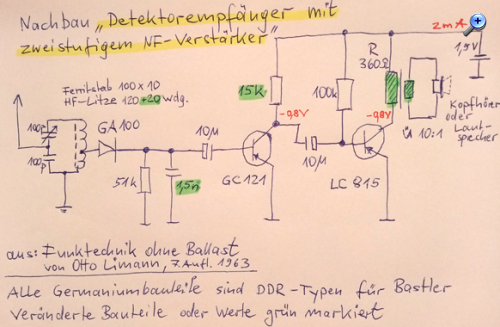 Nachbau „Detektorempfänger mit
zweistufigem NF-Verstärker"
2mA
1,5V
R
360Ω
15k
100k
-0,8V
-0,8V
Ferritstab 100x10
HF-Litze 120+20 Wdg.
100p
100p
GA100
10µ
51k
1,5n
GC121
10µ
LC 815
ü 10:1
Kopfhörer
oder
Laut-
specher
aus: Funktechnik ohne Ballast
von Otto Limann, 7. Aufl. 1963
Alle Germaniumbauteile sind DDR-Typen für Bastler
Veränderte Bauteile oder Werte grün markiert